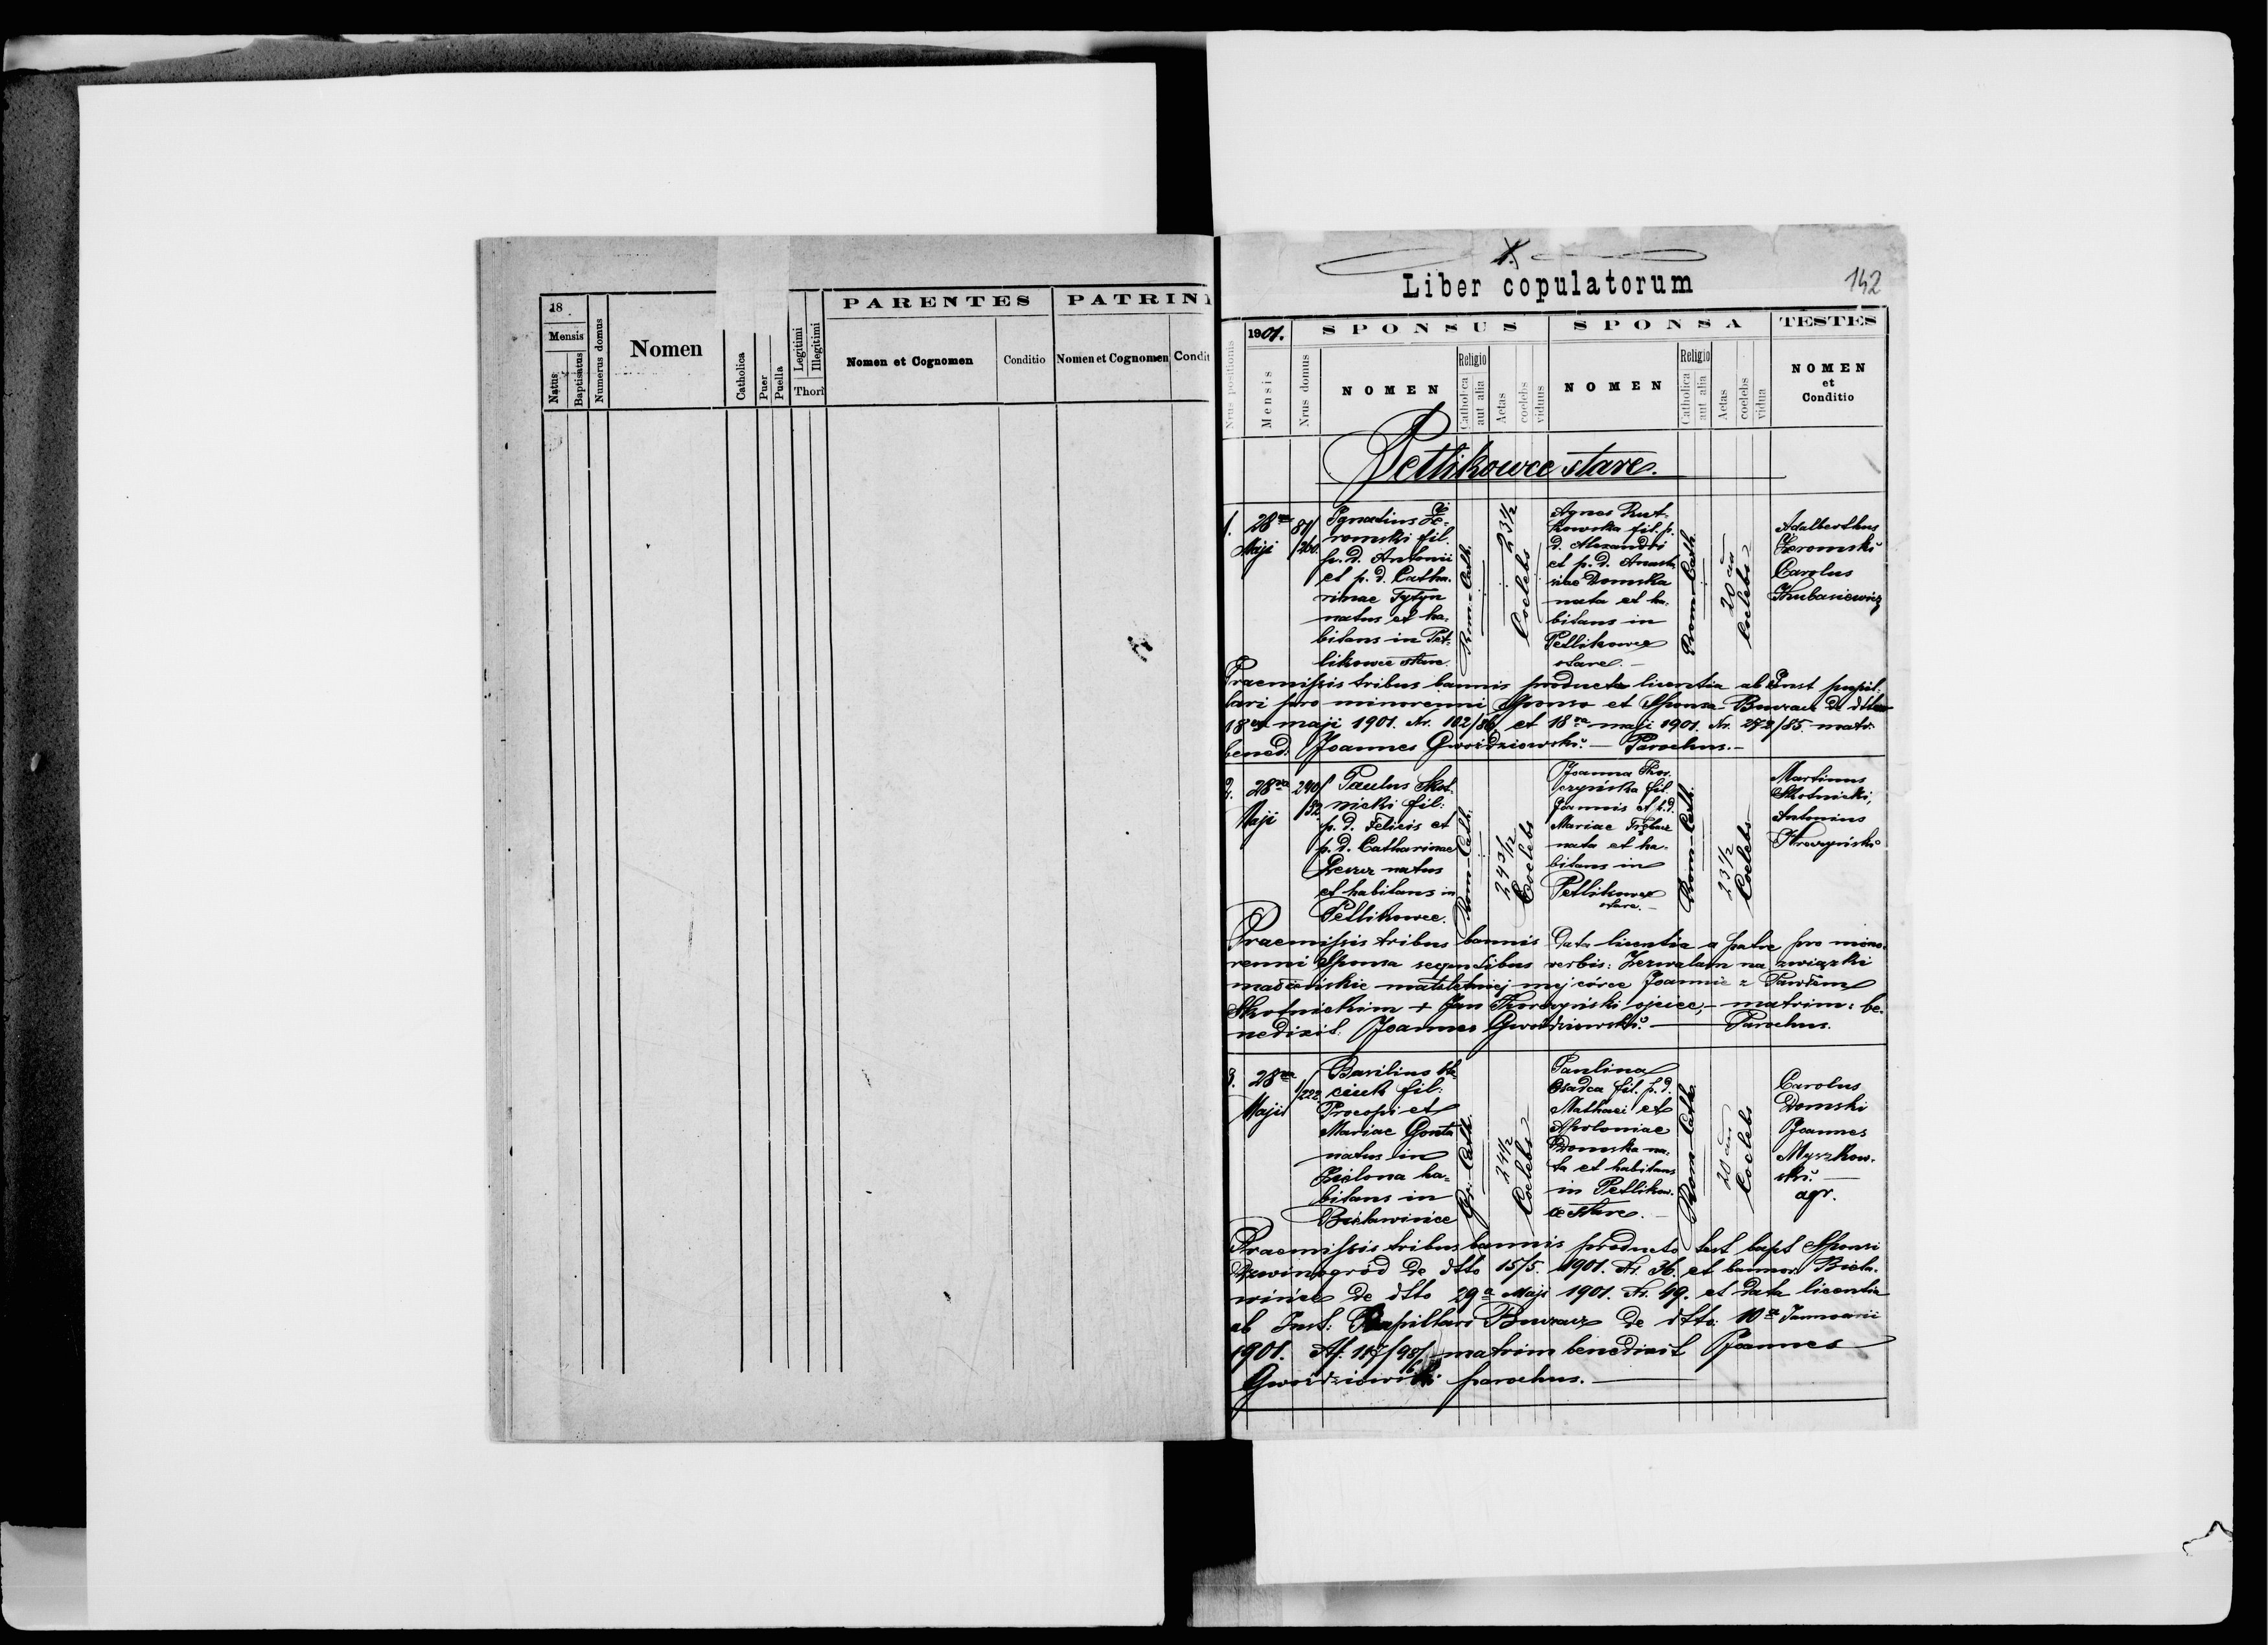 18
Mensis
Natus
Baptisatus
Numerus domus
Nomen
Catholica
Puer
Puella
Legitimi
Illegitimi
Thori
PARENTES
Nomen et Cognomen
Conditio
PATRINI
Nomen et Cognomen
Condit
1.
Liber copulatorum
142
Nrus positionis
1901.
Mensis
Nrus domus
SPONSUS
NOMEN
Religio
Catholica
aut alia
Aetas
coelebs
viduus
SPONSA
NOMEN
Religio
Catholica
aut alia
Aetas
coelebs
vidua
TESTES
NOMEN
et
Conditio
Petlikowce stare.
1.
28va
Maji
87/
/260.
Ignatius Że-
romski fil.
p. d. Antonii
et p. d. Catha-
rinae Tytyn
natus et ha-
bitans in Pet-
likowce stare.
Rom-Cath.
23 1/2
Coelebs
Agnes Rut-
kowska fil. p.
d. Alexandri
et p. d. Anasta
siae Domska
nata et ha-
bitans in
Petlikowce
stare.-
Rom-Cath.
20 an
Coelebs
Adalberthus
Żeromski
Carolus
Praemissis tribus bannis producta licentia ab Inst pupil-
lari pro minorenni Sponso et Sponsa Buczacz de dtto
18va maji 1901. Nr. 102/86 et 18va maji 1901. Nr. 272/85. matr.
bened. Joannes Gwoździowski.- Parochus.-
2.
28va
Maji
240/
/52.
Paulus Skot-
nicki fil:
p. d. Felicis et
p. d. Catharinae
natus
et habitans in
Petlikowce.
Rom-Cath.
24 3/12
Coelebs
Joanna Skor-
czyńska fil.
Joannis et p. d.
Mariae
nata et ha-
bitans in
Petlikowce
stare.-
Rom-Cath.
23 1/2
Coelebs
Martinus
Skotnicki,
Antonius
Praemissis tribus bannis Data licentia a patre pro mino-
renni Sponsa sequentibus verbis: Zezwalam na związki
małżeńskie małoletniej mej córce Joannie z Pawłem
Skotnickim + Jan Skorczyński ojciec,- matrim: be-
nedixit. Joannes Gwoździowski.- Parochus.
3.
28va
Maji
/222.
Basilius
ciuk fil:
Procopi et
Mariae Gonta
natus in
Zielona ha-
bitans in
Bielawińce
Gr. Cath.
24 1/2
Coelebs
Paulina
Osadca fil. p. d.
Mathaei et
Apoloniae
Domska na-
ta et habitans
in Petlikow-
ce stare.-
Rom-Cath.
20 an
Coelebs
Carolus
Domski
Joannes
Myszkow-
ski.-
agr.
Praemissis tribus bannis producto test bapt Sponsi
Dzwinogród de dtto 15/5. 1901. Nr. 36. et bannor. Biela-
wińce de dtto 29a Maji 1901. Nr. 49. et Data licentia
ab Inst: Pupillari Buczacz de dtto: 10a Januarii
1901. matrim benedixit Joannes
Gwoździowski parochus.